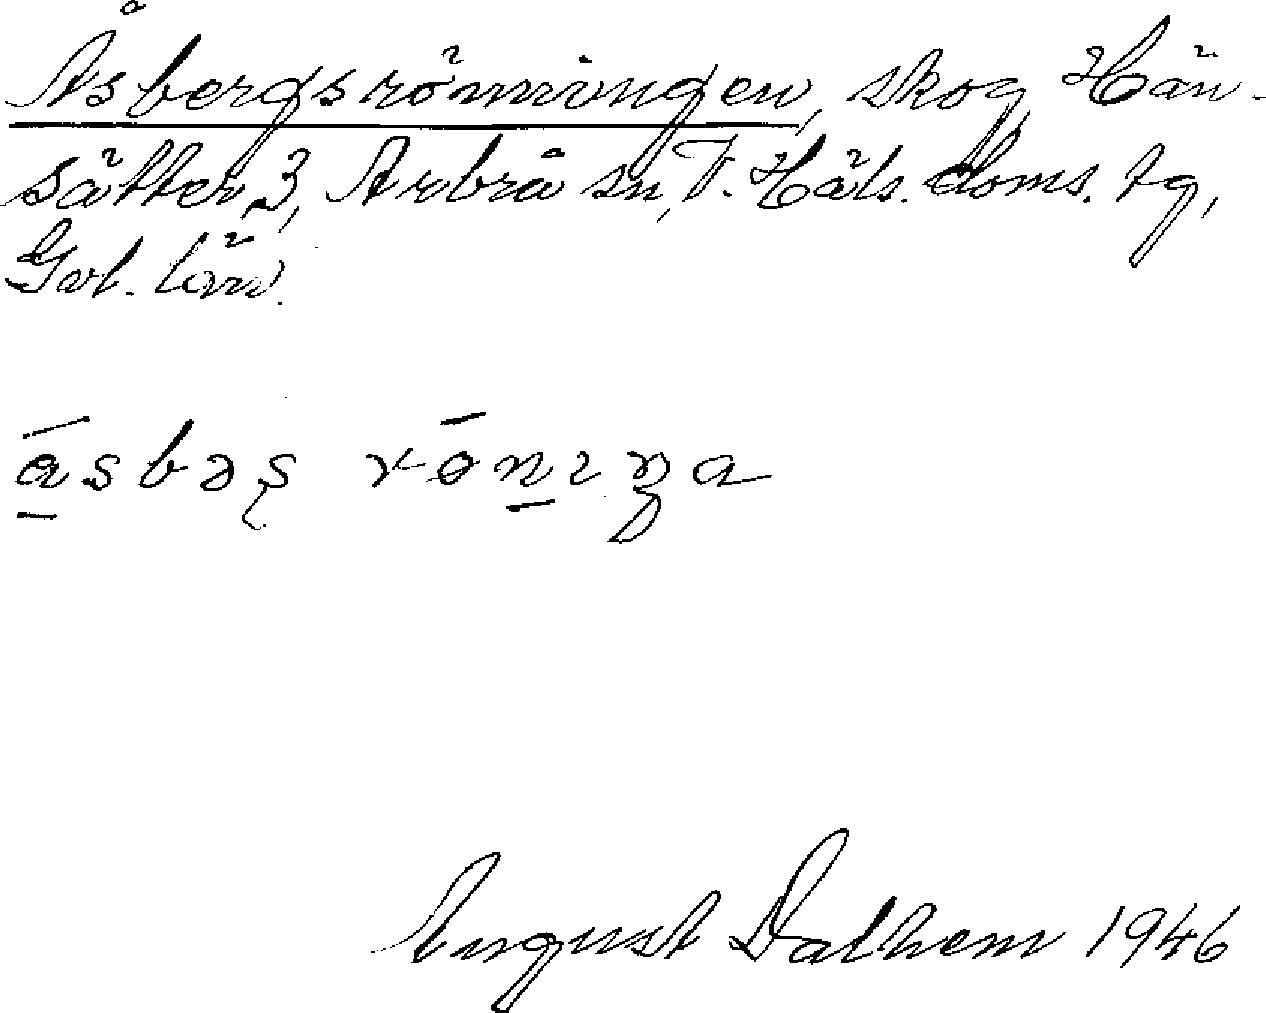 Åsbergsrönningen, skog, Hän-
sätter 3, Arbrå sn, V. Häls. doms. tg,
Gvl. län.
åsbəʂ rönɪŋa
August Dalhem 1946